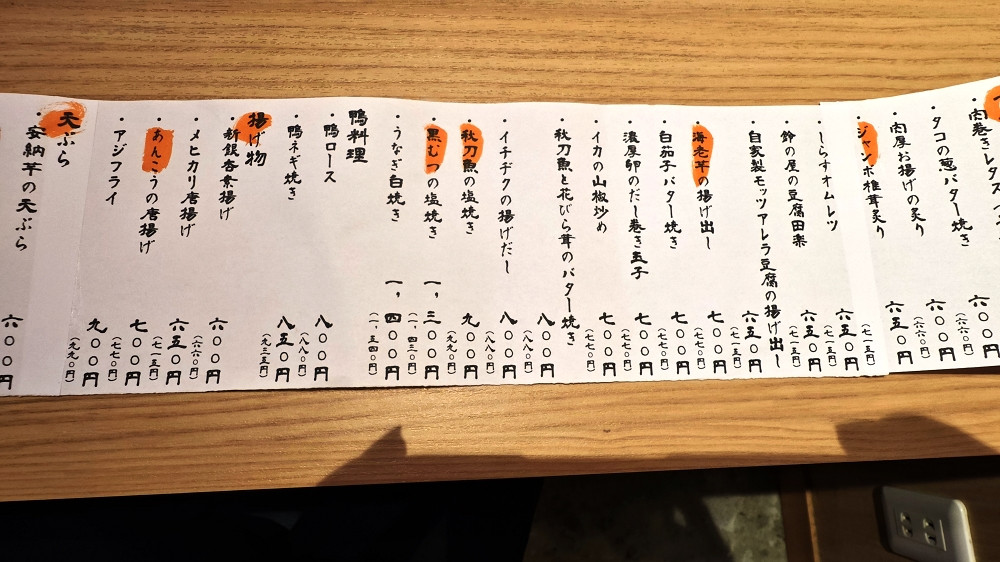 ・肉巻きレタス
・タコの葱バター焼き 六〇〇円
(六六〇円)
・肉厚お揚げの炙り 六〇〇円
(六六〇円)
・ジャンボ椎茸炙り 六五〇円
(七一五円)
・しらすオムレツ 六五〇円
(七一五円)
・鈴の屋の豆腐田楽 六五〇円
(七一五円)
・自家製モッツアレラ豆腐の揚げ出し 六五〇円
(七一五円)
・海老芋の揚げ出し 七〇〇円
(七七〇円)
・白茄子バター焼き 七〇〇円
(七七〇円)
・濃厚卵のだし巻き玉子 七〇〇円
(七七〇円)
・イカの山椒炒め 七〇〇円
(七七〇円)
・秋刀魚と花びら茸のバター焼き 八〇〇円
(八八〇円)
・イチヂクの揚げだし 八〇〇円
(八八〇円)
・秋刀魚の塩焼き 九〇〇円
(九九〇円)
・黒むつの塩焼き 一、三〇〇円
(一、四三〇円)
・うなぎ白焼き 一、四〇〇円
(一、五四〇円)
鴨料理
・鴨ロース 八〇〇円
(八八〇円)
・鴨ネギ焼き 八五〇円
(九三五円)
揚げ物
・新銀杏素揚げ 六〇〇円
(六六〇円)
・メヒカリ唐揚げ 六五〇円
(七一五円)
・あんこうの唐揚げ 七〇〇円
(七七〇円)
・アジフライ 九〇〇円
(九九〇円)
天ぷら
・安納芋の天ぷら 六〇〇円